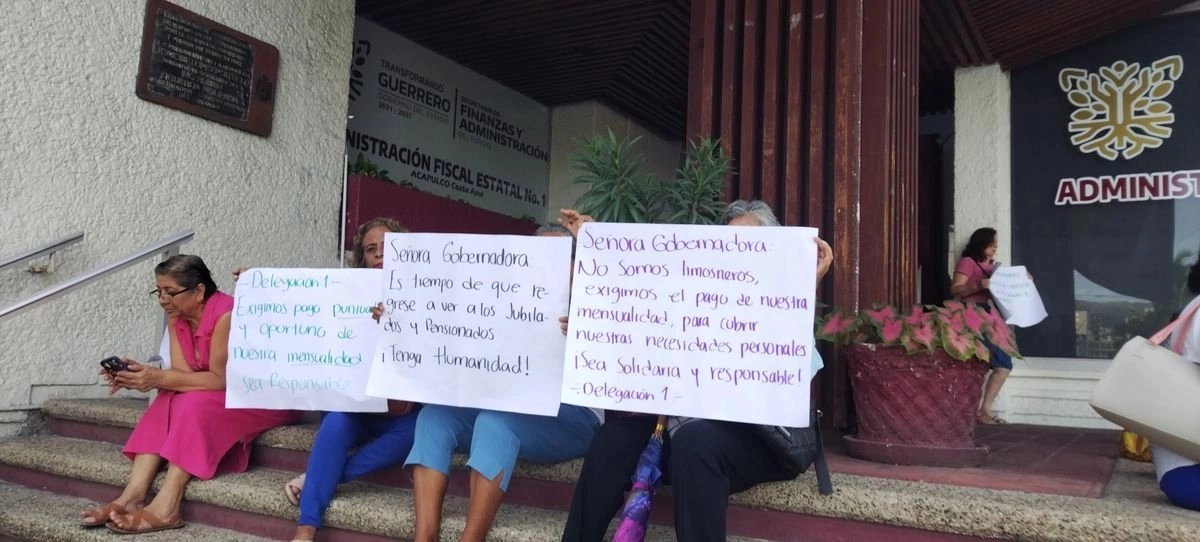 TRANSFORMANDO
GUERRERO
GOBIERNO DEL ESTADO
2021 - 2027
SECRETARÍA DE
FINANZAS Y
ADMINISTRACIÓN
DEL ESTADO
NISTRACIÓN FISCAL ESTATAL No. 1
ACAPULCO Costa Azul
ADMINIST
-Delegación 1-
Exigimos pago puntual
y oportuno de
nuestra mensualidad
Sea Responsable
Señora Gobernadora:
Es tiempo de que re-
grese a ver a los Jubila-
dos y Pensionados
¡Tenga Humanidad!
Señora Gobernadora:
No Somos limosneros,
exigimos el pago de nuestra
mensualidad, para cubrir
nuestras necesidades personales
¡Sea Solidaria y responsable!
-Delegación 1-